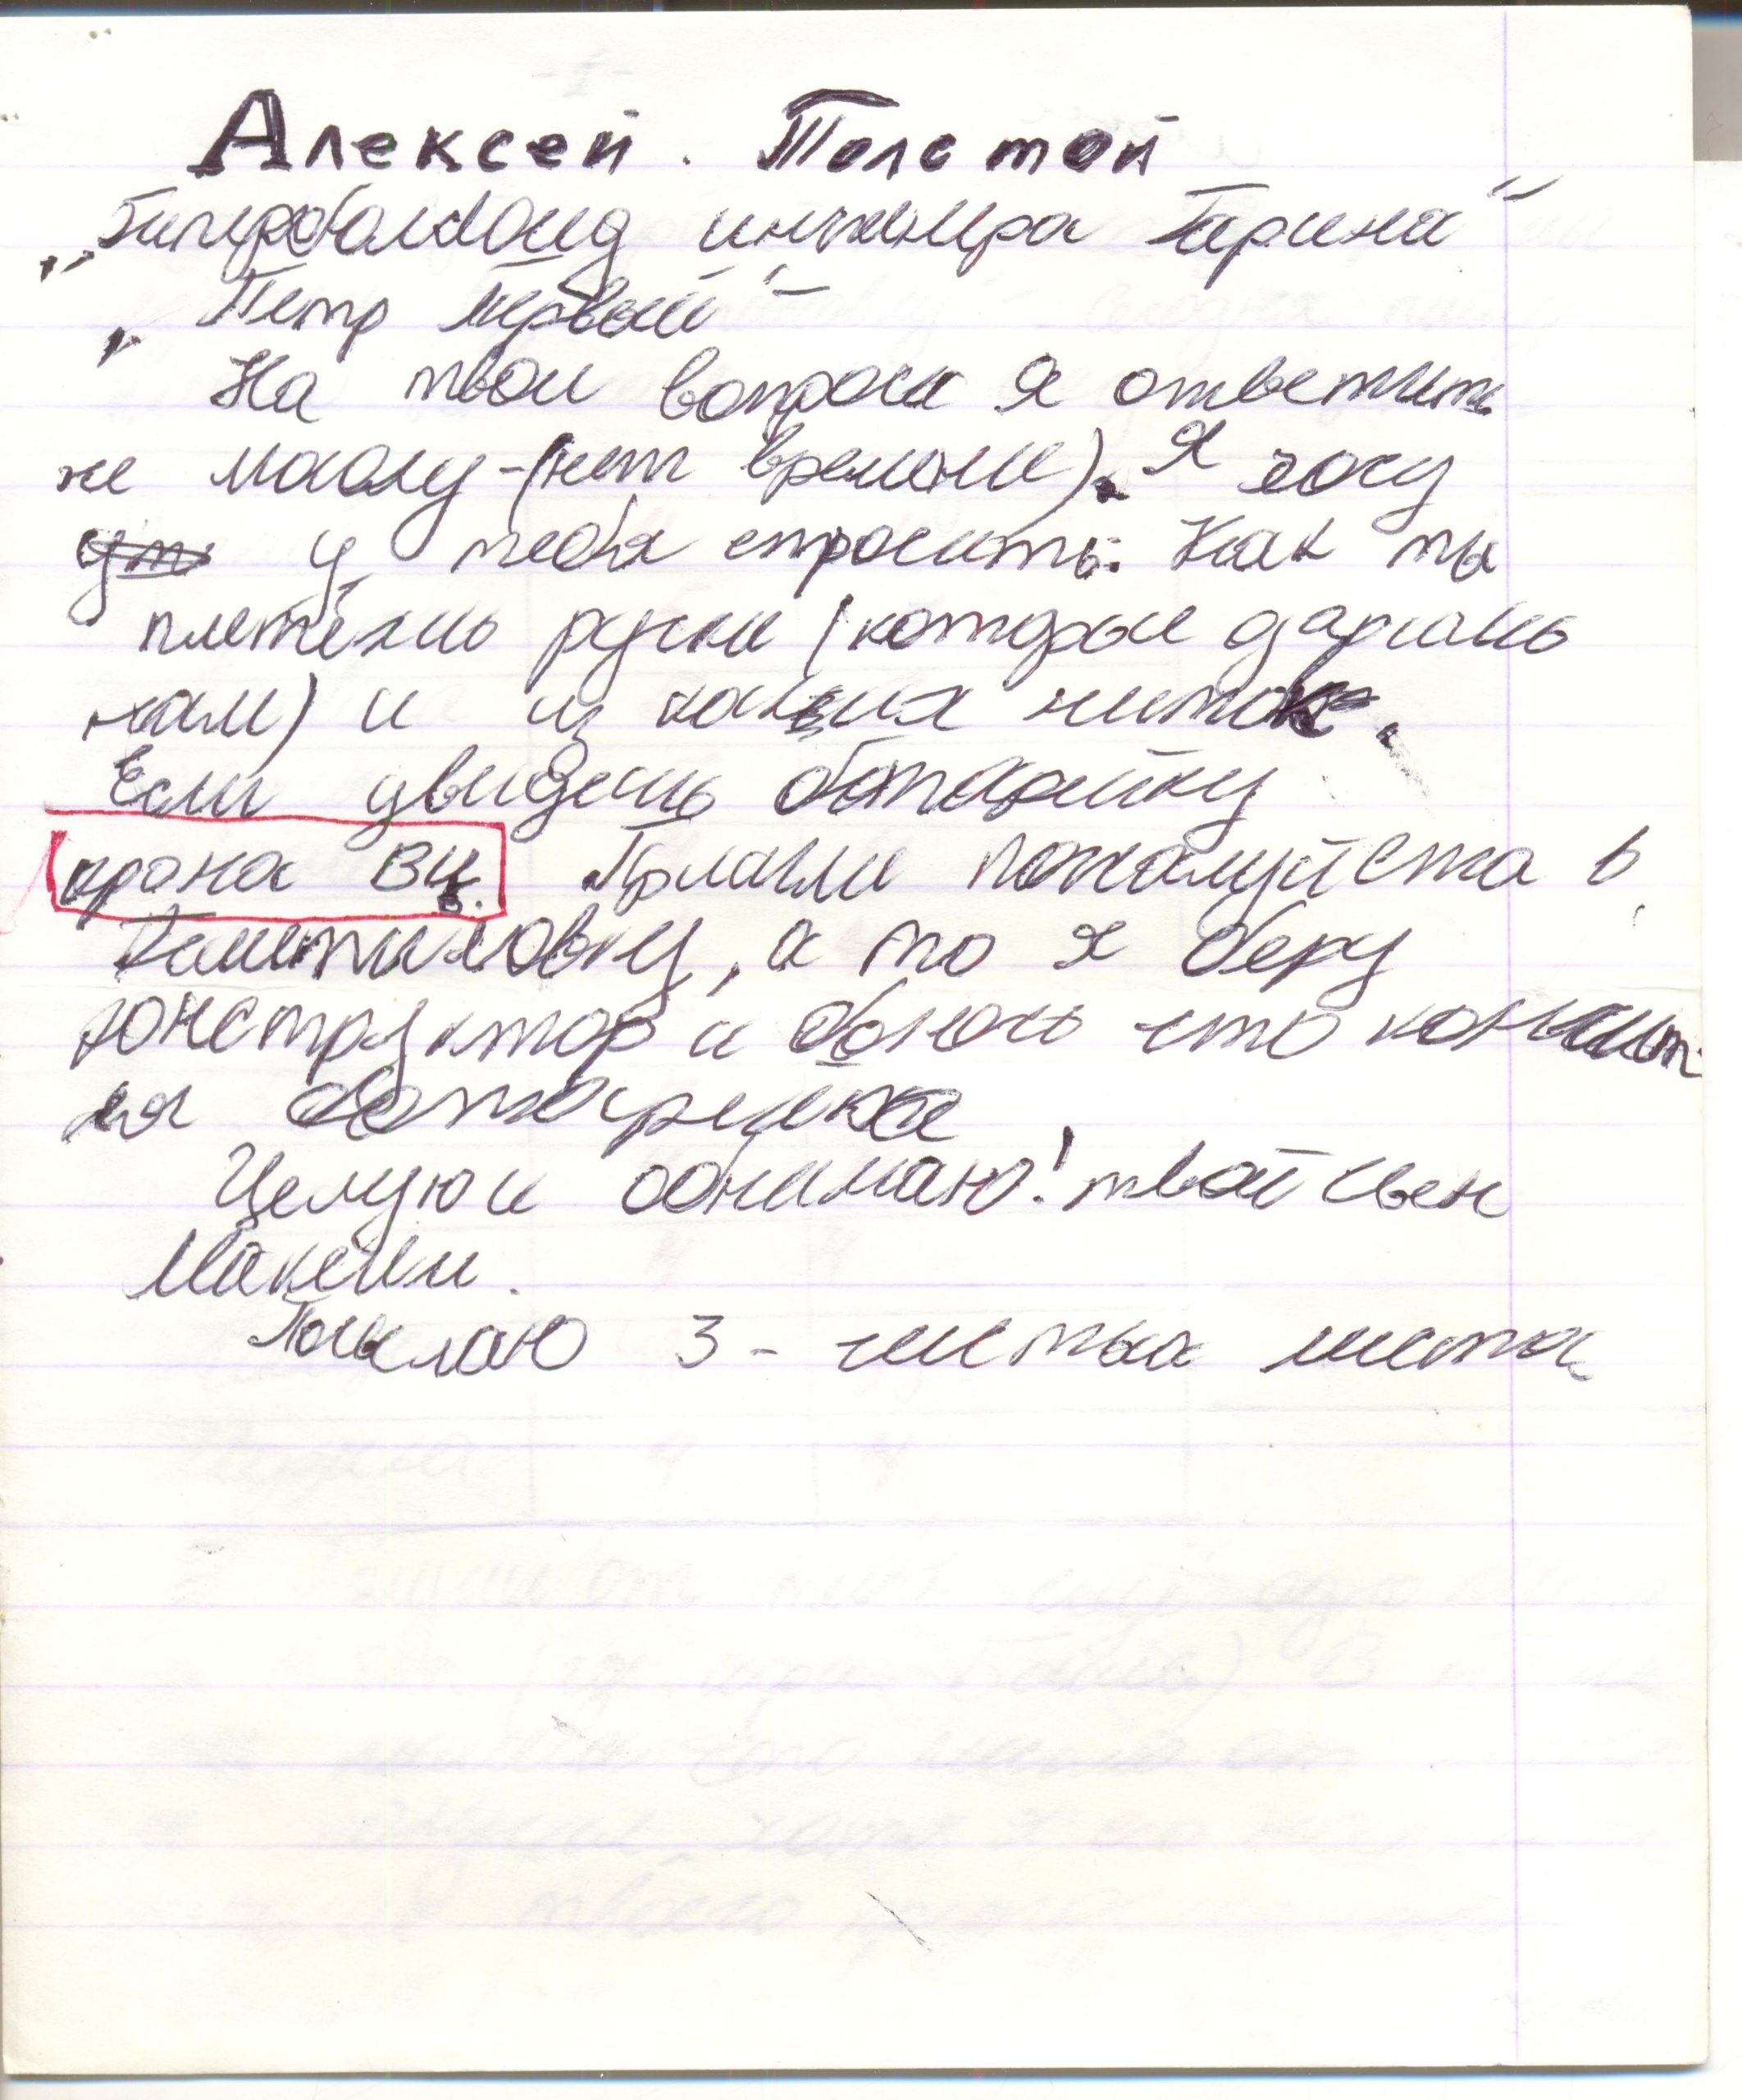 Алексей. Толстой
„Гиперболоид инженера Гарина"
„Петр Первый"
На твои вопросы я ответить
не магу - (нет времени). Я хочу
у тебя спросить: Как ты
плетёшь ручки (которые даришь
нам) и из каких ниток.
Если увидешь батарейку
крона ВЦ. Пришли пожалуйста в
, а то я беру
конструктор и боюсь что кончит-
ся батарейка
Целую и обнимаю! твой сын
Максим.
Посылаю 3 - чистых листа